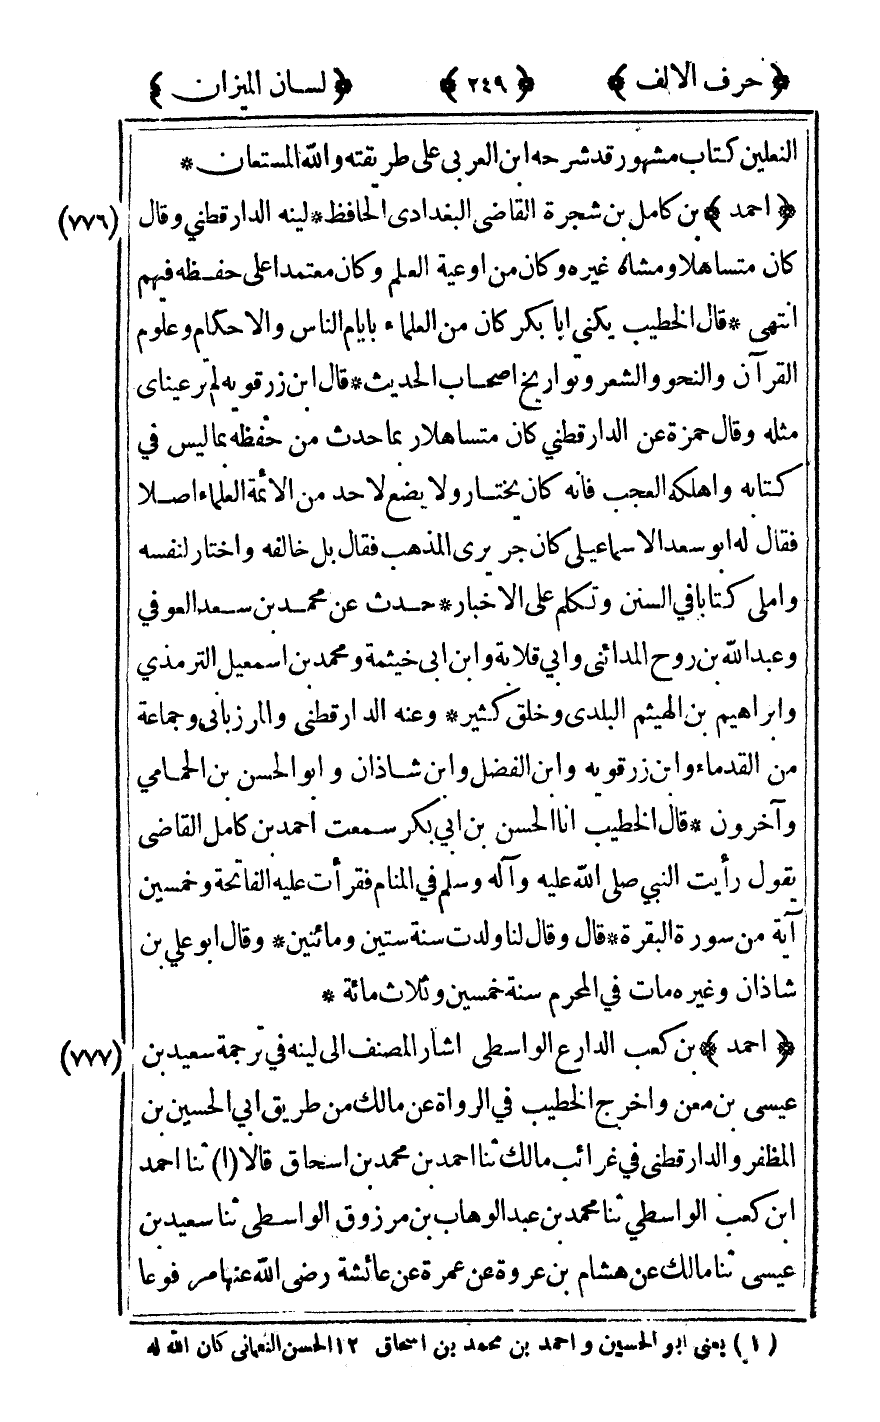 ﴿ حرف الالف ﴾ ﴿ ٢٤٩ ﴾ ﴿ لسان الميزان ﴾
النعلين كتاب مشهور قد شرحه ابن العربى على طريقته والله المستعان *
﴿ احمد ﴾ بن كامل بن شجرة القاضى البغدادى الحافظ * لينه الدارقطني وقال (٧٧٦)
كان متساهلا ومشاه غيره وكان من اوعية العلم وكان معتمدا على حفظه فيهم
انتهى * قال الخطيب يكنى ابا بكر كان من العلماء بايام الناس والاحكام وعلوم
القرآن والنحو والشعر وتواريخ اصحاب الحديث * قال ابن زرقويه لم تر عيناى
مثله وقال حمزة عن الدارقطني كان متساهلا ربما حدث من حفظه بما ليس في
كتابه واهلكه العجب فانه كان يختار ولا يضع لاحد من الائمة العلماء اصلا
فقال له ابو سعد الاسماعيلى كان جريرى المذهب فقال بل خالفه واختار لنفسه
واملى كتابا في السنن وتكلم على الاخبار * حدث عن محمد بن سعد العوفي
وعبد الله بن روح المدائنى وابي قلابة وابن ابى خيثمة ومحمد بن اسمعيل الترمذي
وابراهيم بن الهيثم البلدى وخلق كثير * وعنه الدارقطنى والمرزبانى وجماعة
من القدماء وابن زرقويه وابن الفضل وابن شاذان وابو الحسن بن الحمامي
وآخرون * قال الخطيب انا الحسن بن ابي بكر سمعت احمد بن كامل القاضى
يقول رأيت النبي صلى الله عليه وآله وسلم في المنام فقرأت عليه الفاتحة وخمسين
آية من سورة البقرة * قال وقال لنا ولدت سنة ستين ومائتين * وقال ابو علي بن
شاذان وغيره مات في المحرم سنة خمسين وثلاث مائة *
﴿ احمد ﴾ بن كعب الدارع الواسطى اشار المصنف الى لينه في ترجمة سعيد بن (٧٧٧)
عيسى بن معن واخرج الخطيب في الرواة عن مالك من طريق ابي الحسين بن
المظفر والدارقطنى في غرائب مالك ثنا احمد بن محمد بن اسحاق قالا (١) ثنا احمد
ابن كعب الواسطي ثنا محمد بن عبد الوهاب بن مرزوق الواسطى ثنا سعيد بن
عيسى ثنا مالك عن هشام بن عروة عن عمرة عن عائشة رضى الله عنها مرفوعا
(١) يعنى ابو الحسين و احمد بن محمد بن اسحاق ١٢ الحسن النعمانى كان الله له